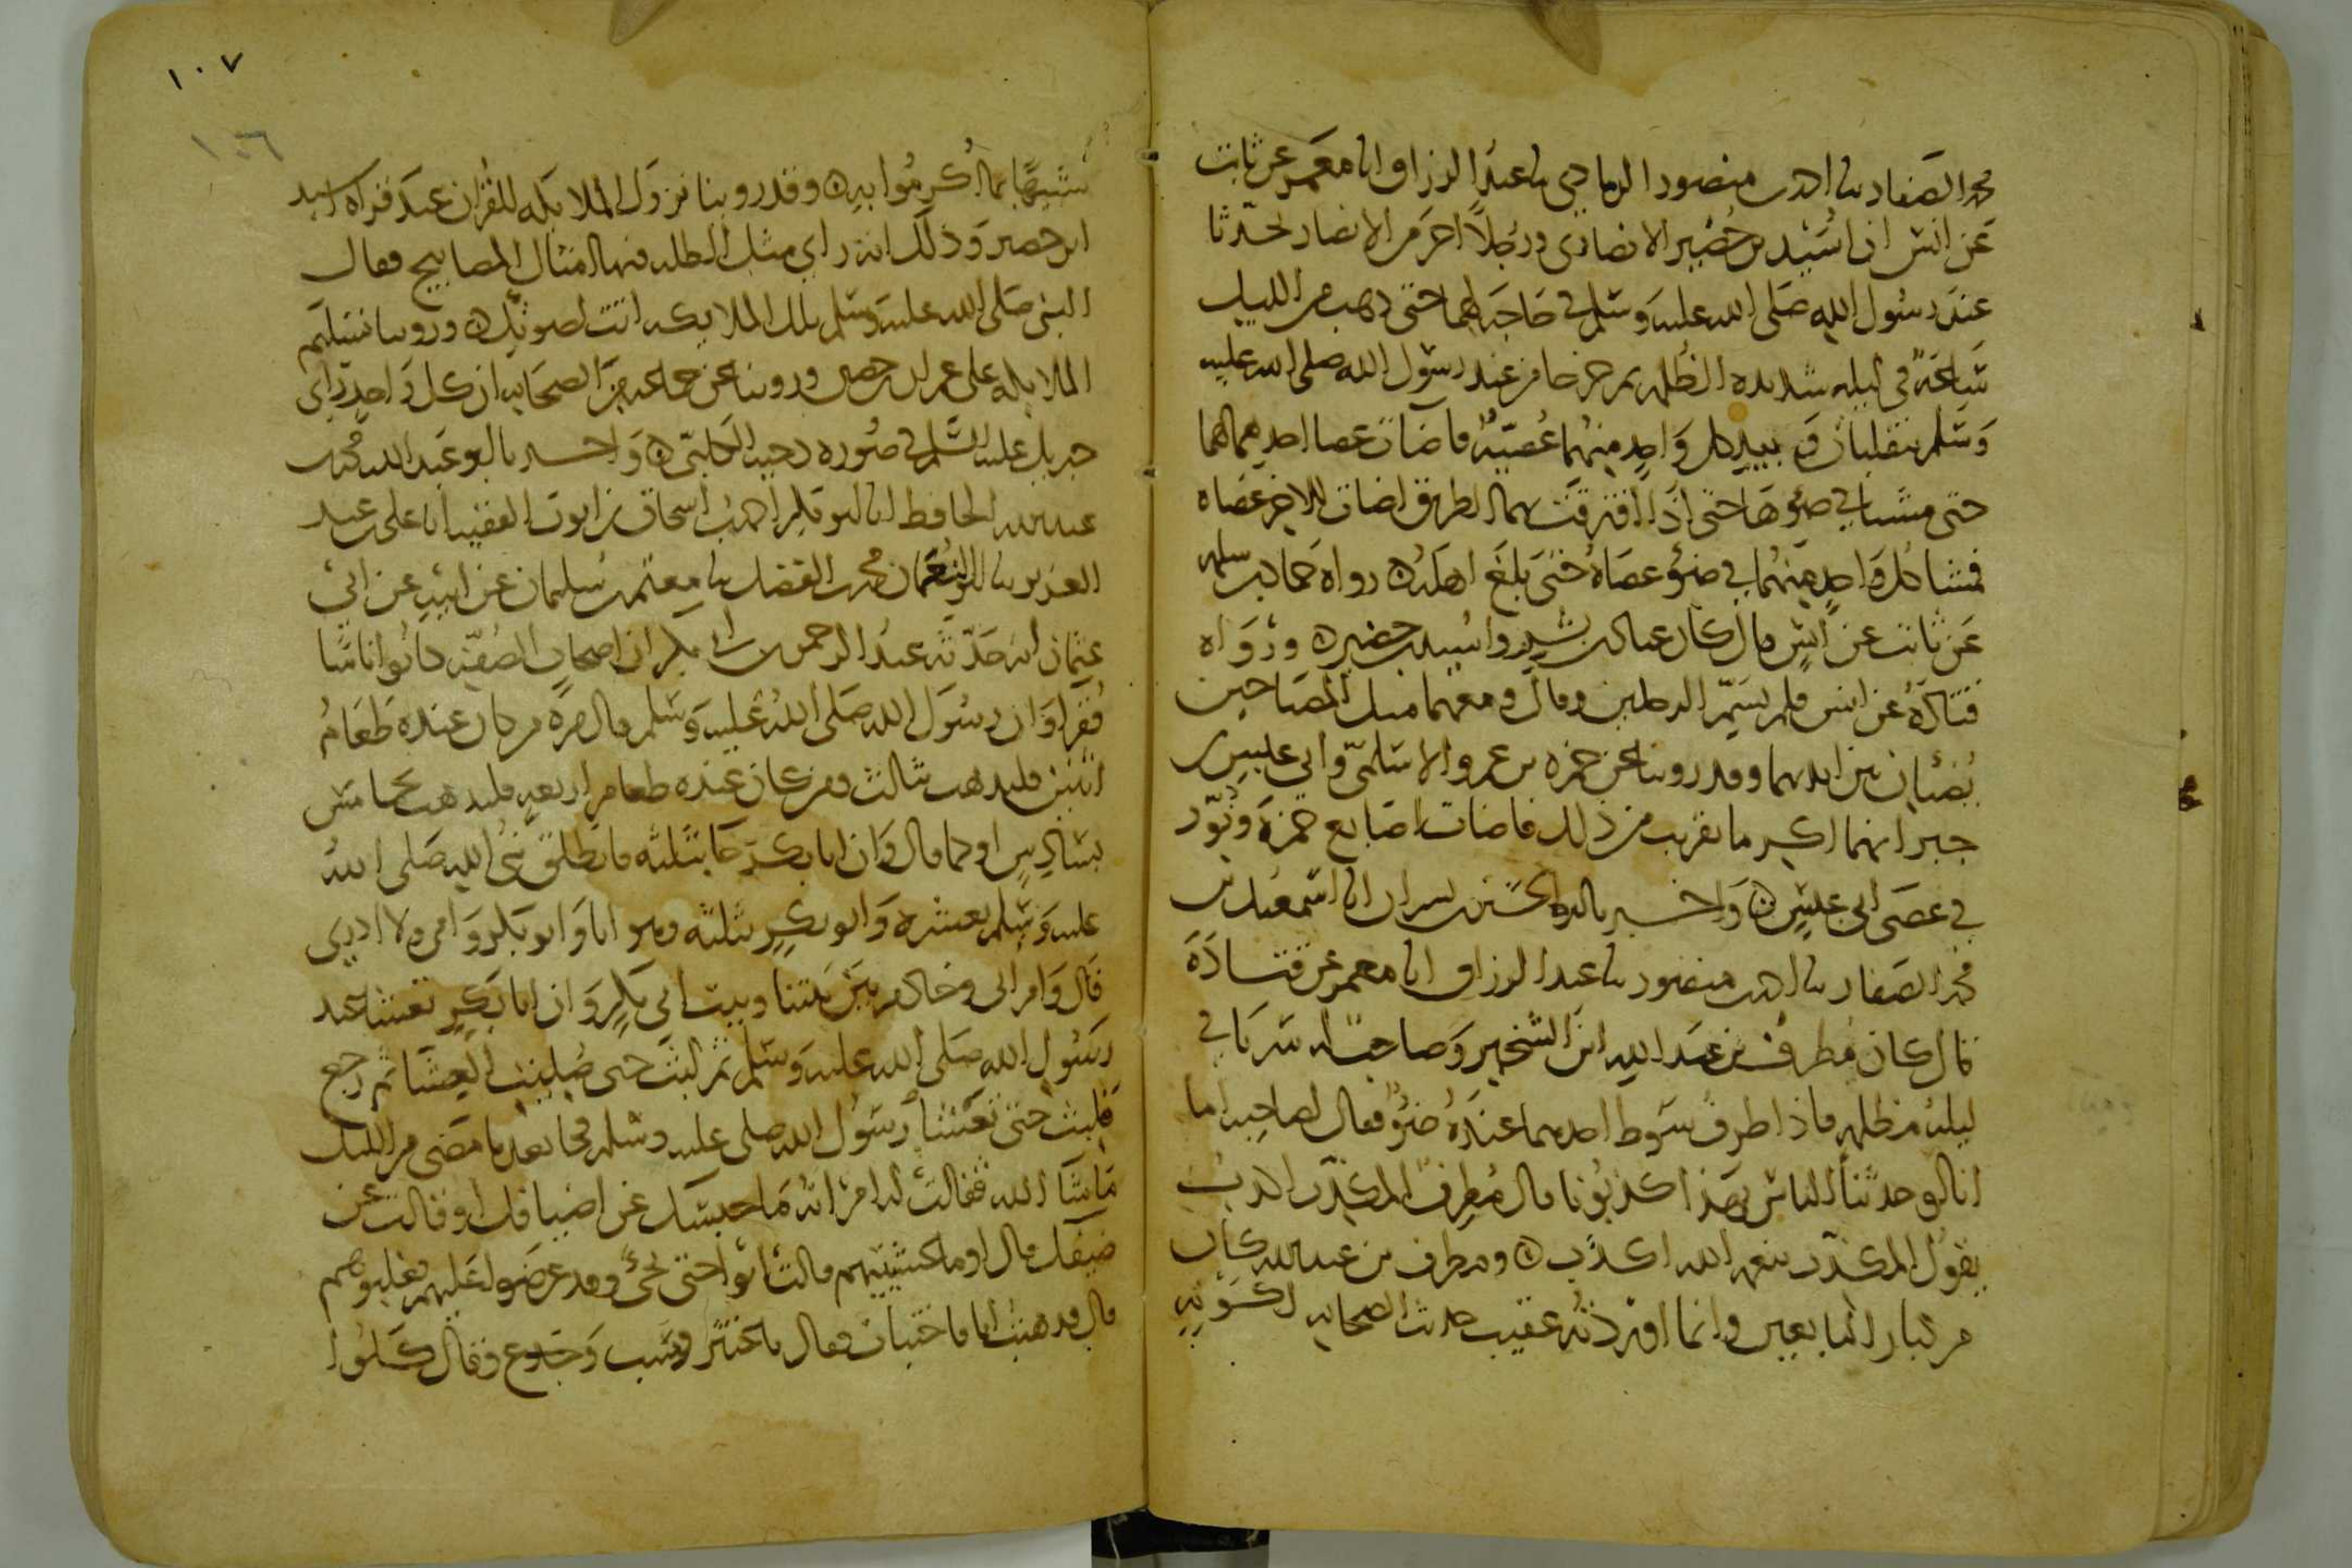 محمد الصفار ثنا احمد بن منصور الرمادي ثنا عبد الرزاق انا معمر عن ثابت
عن انس ان اسيد بن حضير الانصاري ورجلا اخر من الانصار تحدثا
عند رسول الله صلى الله عليه وسلم في حاجة لهما حتى ذهب من الليل
ساعة في ليلة شديدة الظلمة ثم خرجا من عند رسول الله صلى الله عليه
وسلم ينقلبان وبيد كل واحد منهما عصية فاضات عصا احدهما لهما
حتى مشيا في ضوها حتى اذا افترقت بهما الطريق اضات للاخر عصاه
فمشا كل واحد منهما في ضوء عصاه حتى بلغ اهله رواه حماد بن سلمة
عن ثابت عن انس قال كان عباد بن بشر واسيد بن حضير ورواه
قتادة عن انس فلم يسم الرجلين وقال ومعهما مثل المصباحين
يضئان بين ايديهما وقد روينا عن حمزة بن عمرو الاسلمي وابي عبس بن
جبر انهما اكرما بقريب من ذلك فاضات اصابع حمزة ونور
في عصى ابي عبس واخبرنا ابو الحسين بن بشران انا اسمعيل بن
محمد الصفار ثنا احمد بن منصور ثنا عبد الرزاق انا معمر عن قتادة
قال كان مطرف بن عبد الله ابن الشخير وصاحب له سريا في
ليلة مظلمة فاذا طرف سوط احدهما عنده ضوء فقال لصاحبه اما
انا لو حدثنا الناس بهذا كذبونا قال مطرف المكذب اكذب
يقول المكذب بنعمة الله اكذب ومطرف بن عبد الله كان
من كبار التابعين وانما اوردته عقيب حديث الصحابة لكونه
١٠٧
١٠٦
شبيها بما اكرموا به وقد روينا نزول الملايكة للقران عند قراة اسيد
ابن حضير وذلك انه راي مثل الظلة فيها امثال المصابيح فقال
النبي صلى الله عليه وسلم تلك الملايكة اتت لصوتك وروينا تسليم
الملايكة على عمران بن حصين وروينا عن جماعة من الصحابة ان كل واحد راى
جبريل عليه السلم في صورة دحية الكلبي واخبرنا ابو عبد الله محمد بن
عبد الله الحافظ انا ابو بكر احمد بن اسحاق بن ايوب الفقيه انا على بن عبد
العزيز ثنا ابو النعمان محمد بن الفضل ثنا معتمر بن سليمان عن ابيه عن ابي
عثمان انه حدثه عبد الرحمن بن ابي بكر ان اصحاب الصفة كانوا اناسا
فقرا وان رسول الله صلى الله عليه وسلم قال مرة من كان عنده طعام
اثنين فليذهب بثالث ومن كان عنده طعام اربعة فليذهب بخامس
بسادس او كما قال وان ابا بكر جا بثلثة فانطلق نبي الله صلى الله
عليه وسلم بعشرة وابو بكر بثلثة وهو انا وابو بكر وامي ولا ادري
قال وامراتي وخادم بين بيتنا وبيت ابي بكر وان ابا بكر تعشا عند
رسول الله صلى الله عليه وسلم ثم لبث حتى صليت العشا ثم رجع
فلبث حتى تعشا رسول الله صلى عليه وسلم فجا بعد ما مضى من الليل
ما شا الله فقالت له امراته ما حبسك عن اضيافك او قالت عن
ضيفك قال اوما عشيتيهم قالت ابوا حتى تجئ وقد عرضوا عليهم فغلبوهم
قال فذهبت انا فاختبات فقال يا غنثر وسب وجدع وقال كلوا